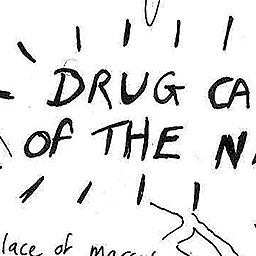 DRUG CA
OF THE N
lace of